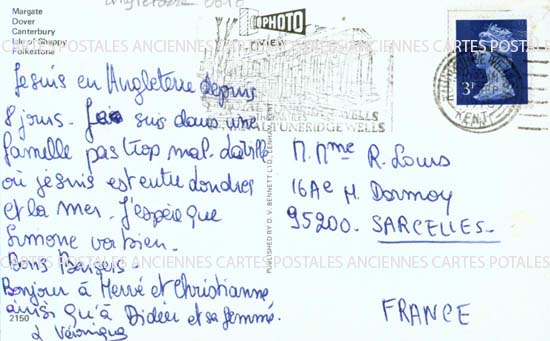 Margate
Dover
Canterbury
Isle of Sheppy
Folkestone
Angleterre
PHOTO
VIEW
TUNBRIDGE WELLS
KENT
3P
CARTES POSTALES ANCIENNES CARTES POSTALES ANCIENNES CARTES POTALES
Je suis en Angleterre depuis
8 jours. Je suis dans une
famille pas trop mal. La ville
où je suis est entre Londres
et la mer. J'espère que
Simone va bien.
Bons Baisers.
Bonjour à Hervé et Christianne
ainsi qu'à Didier et sa femme.
Véronique
2150
PUBLISHED BY D. V. BENNETT LTD., LENHAM, KENT
M. Mme R. Louis
16 Av M. Dormoy
95200. SARCELLES.
FRANCE